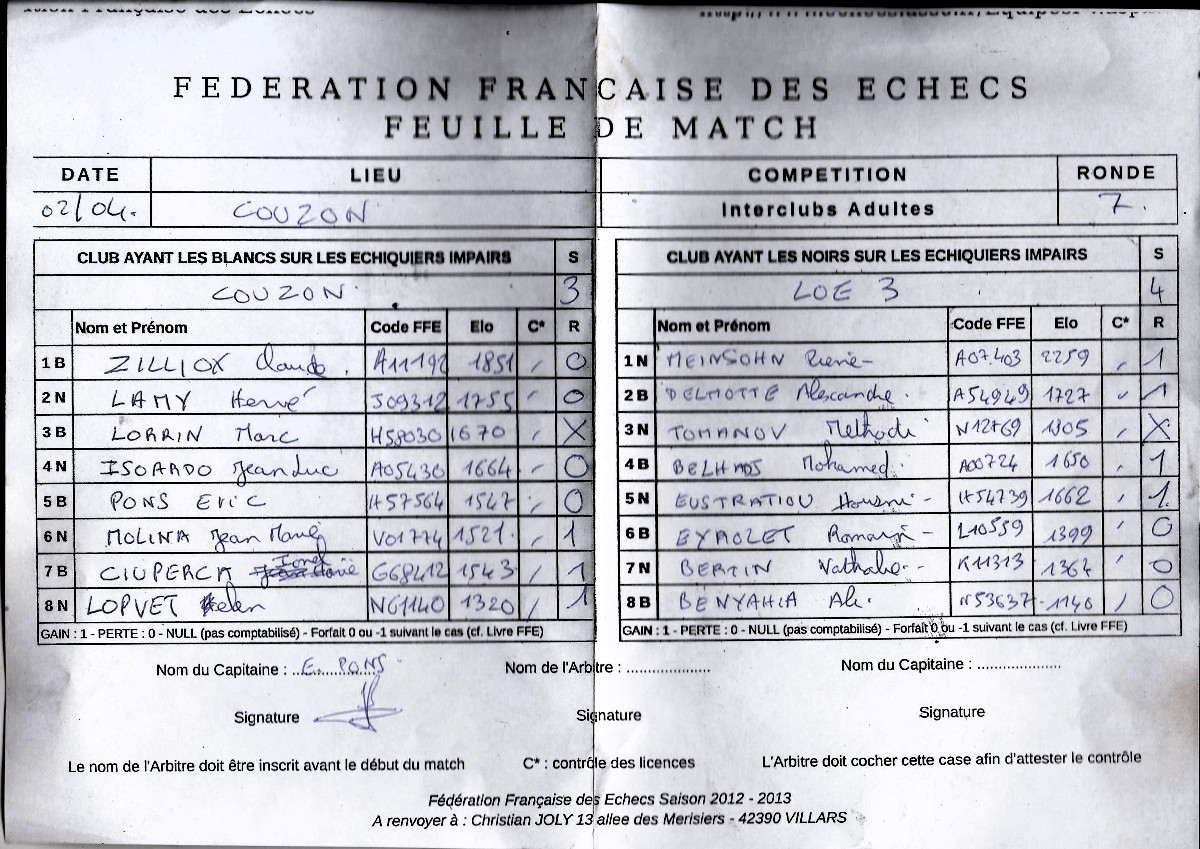 FEDERATION FRANCAISE DES ECHECS
FEUILLE DE MATCH
DATE LIEU COMPETITION RONDE
02/04. COUZON Interclubs Adultes 7.
CLUB AYANT LES BLANCS SUR LES ECHIQUIERS IMPAIRS S CLUB AYANT LES NOIRS SUR LES ECHIQUIERS IMPAIRS S
COUZON 3 LOE 3 4
Nom et Prénom Code FFE Elo C* R Nom et Prénom Code FFE Elo C* R
1 B ZILLIOX Claude A11192 1851 0 1 N MEINSOHN A07403 2259 1
2 N LAMY Hervé J09312 1755 0 2 B DELMOTTE Alexandre A54949 1727 1
3 B LORRIN Marc H58030 1670 X 3 N TOMANOV Methodi N12769 1905 X
4 N ISOARDO Jean Luc A05430 1664 0 4 B BELHADS Mohamed A00724 1650 1
5 B PONS Eric H57564 1547 0 5 N EUSTRATIOU H54739 1662 1
6 N MOLINA Jean V01774 1521 1 6 B EYROLET Romain L10559 1399 0
7 B CIUPERCA Ionel G68412 1543 1 7 N BERTIN Nathalie K11313 1364 0
8 N LOPVET N61140 1320 1 8 B BENYAHIA Ali N53637 1140 0
GAIN : 1 - PERTE : 0 - NULL (pas comptabilisé) - Forfait 0 ou -1 suivant le cas (cf. Livre FFE) GAIN : 1 - PERTE : 0 - NULL (pas comptabilisé) - Forfait 0 ou -1 suivant le cas (cf. Livre FFE)
Nom du Capitaine : E. PONS Nom de l'Arbitre : .................... Nom du Capitaine : ....................
Signature Signature Signature
Le nom de l'Arbitre doit être inscrit avant le début du match C* : contrôle des licences L'Arbitre doit cocher cette case afin d'attester le contrôle
Fédération Française des Echecs Saison 2012 - 2013
A renvoyer à : Christian JOLY 13 allee des Merisiers - 42390 VILLARS